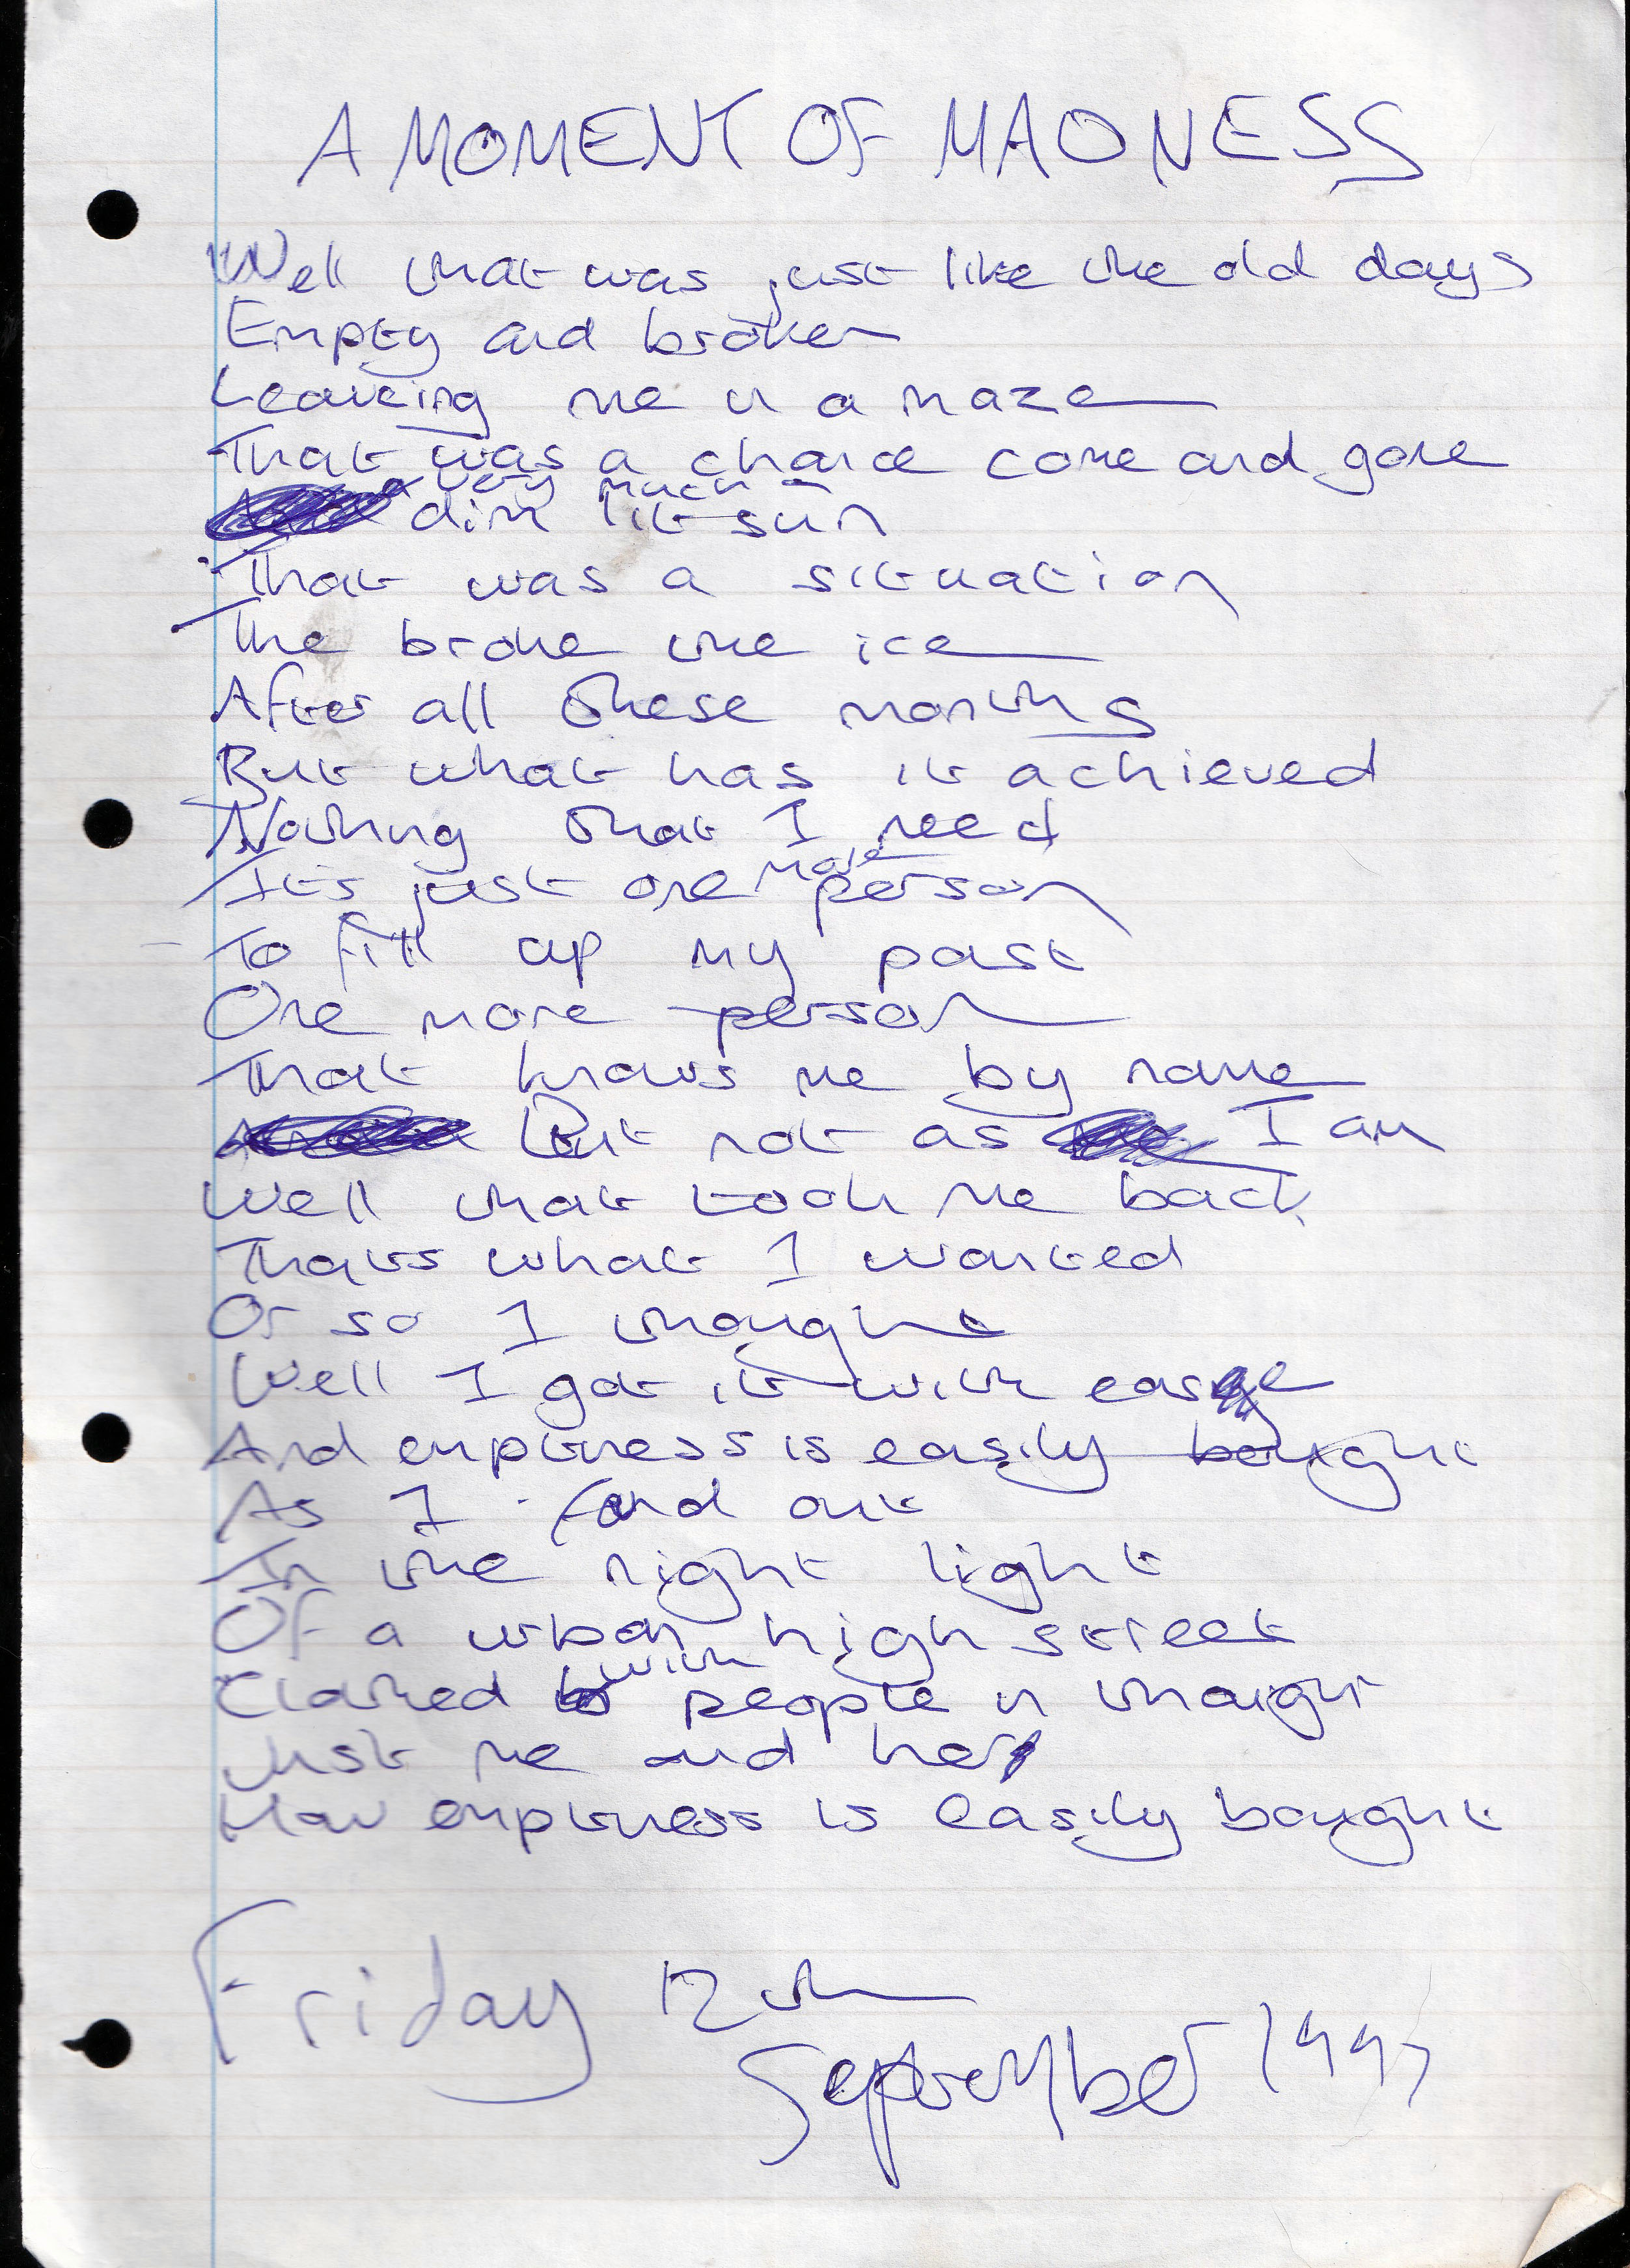 A MOMENT OF MADNESS
Well that was just like the old days
Empty and broken
Leaveing me in a maze
That was a chance come and gone
a very much a
dim lit sun
That was a situation
The broke the ice
After all these months
But what has it achieved
Nothing that I need
It's just one more person
To fill up my past
One more person
That knows me by name
But not as I am
Well that took me back
Thats what I wanted
Or so I thought
Well I got it with ease
And emptness is easily bought
As I found out
In the night light
Of a urban high street
people in thought
Just me and her
How emptness is easily bought
Friday 12th
September 1997